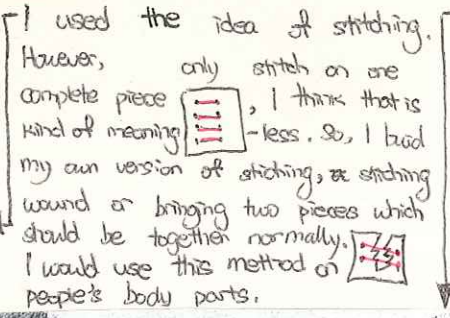 I used the idea of stitching.
However, only stitch on one
complete piece , I think that is
kind of meaning -less. So, I buid
my own version of stiching, stiching
wound or bringing two pieces which
should be together normally.
I would use this method on
people's body parts.